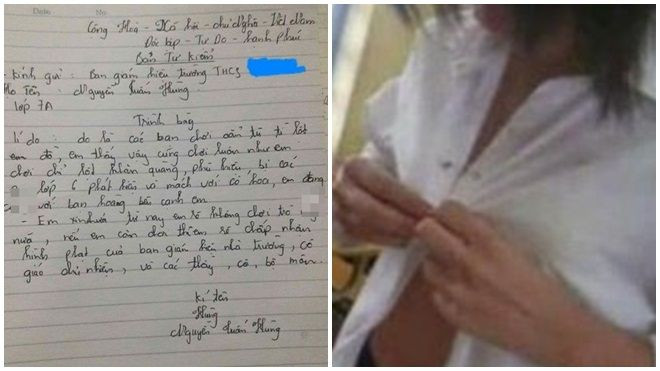 Date: No:
Cộng Hoà - Xã hội - chủ Nghĩa - Việt Nam
Độc lập - Tự Do - hạnh phúc
Bản Tự kiểm
- Kính gửi : Ban giám hiệu trường THCS
Họ Tên : Nguyễn Tuấn Hùng
lớp 7A
Trình bày
lí do : do là các bạn chơi oẳn tù tì lột
em thấy vậy cũng chơi luôn nhưng em
chơi chỉ lột khăn quàng, phù hiệu bị các
lớp 6 phát hiện và mách với cô hoa, em
với bạn hoàng bên cạnh em
- Em xin hứa từ nay em sẽ không chơi trò
nữa, nếu em còn chơi thì em sẽ chấp nhận
hình phạt của ban giám hiệu nhà trường, cô
giáo chủ nhiệm, và các thầy, cô, bộ môn.
kí tên
Hùng
Nguyễn Tuấn Hùng